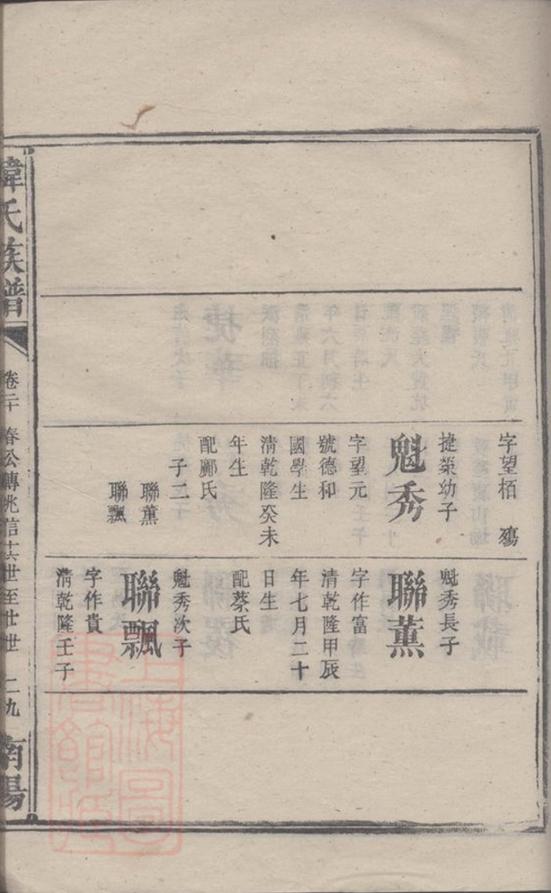 字望栢　殤
捷榮幼子
魁秀
字望元
號德和
國學生
清乾隆癸未
年生
配鄺氏
子二
聯薰
聯飄
魁秀長子
聯薰
字作富
清乾隆甲辰
年七月二十
日生
配蔡氏
魁秀次子
聯飄
字作貴
清乾隆壬子
氏族譜
卷二十　春公轉兆信十六世至廿世　二九
南陽